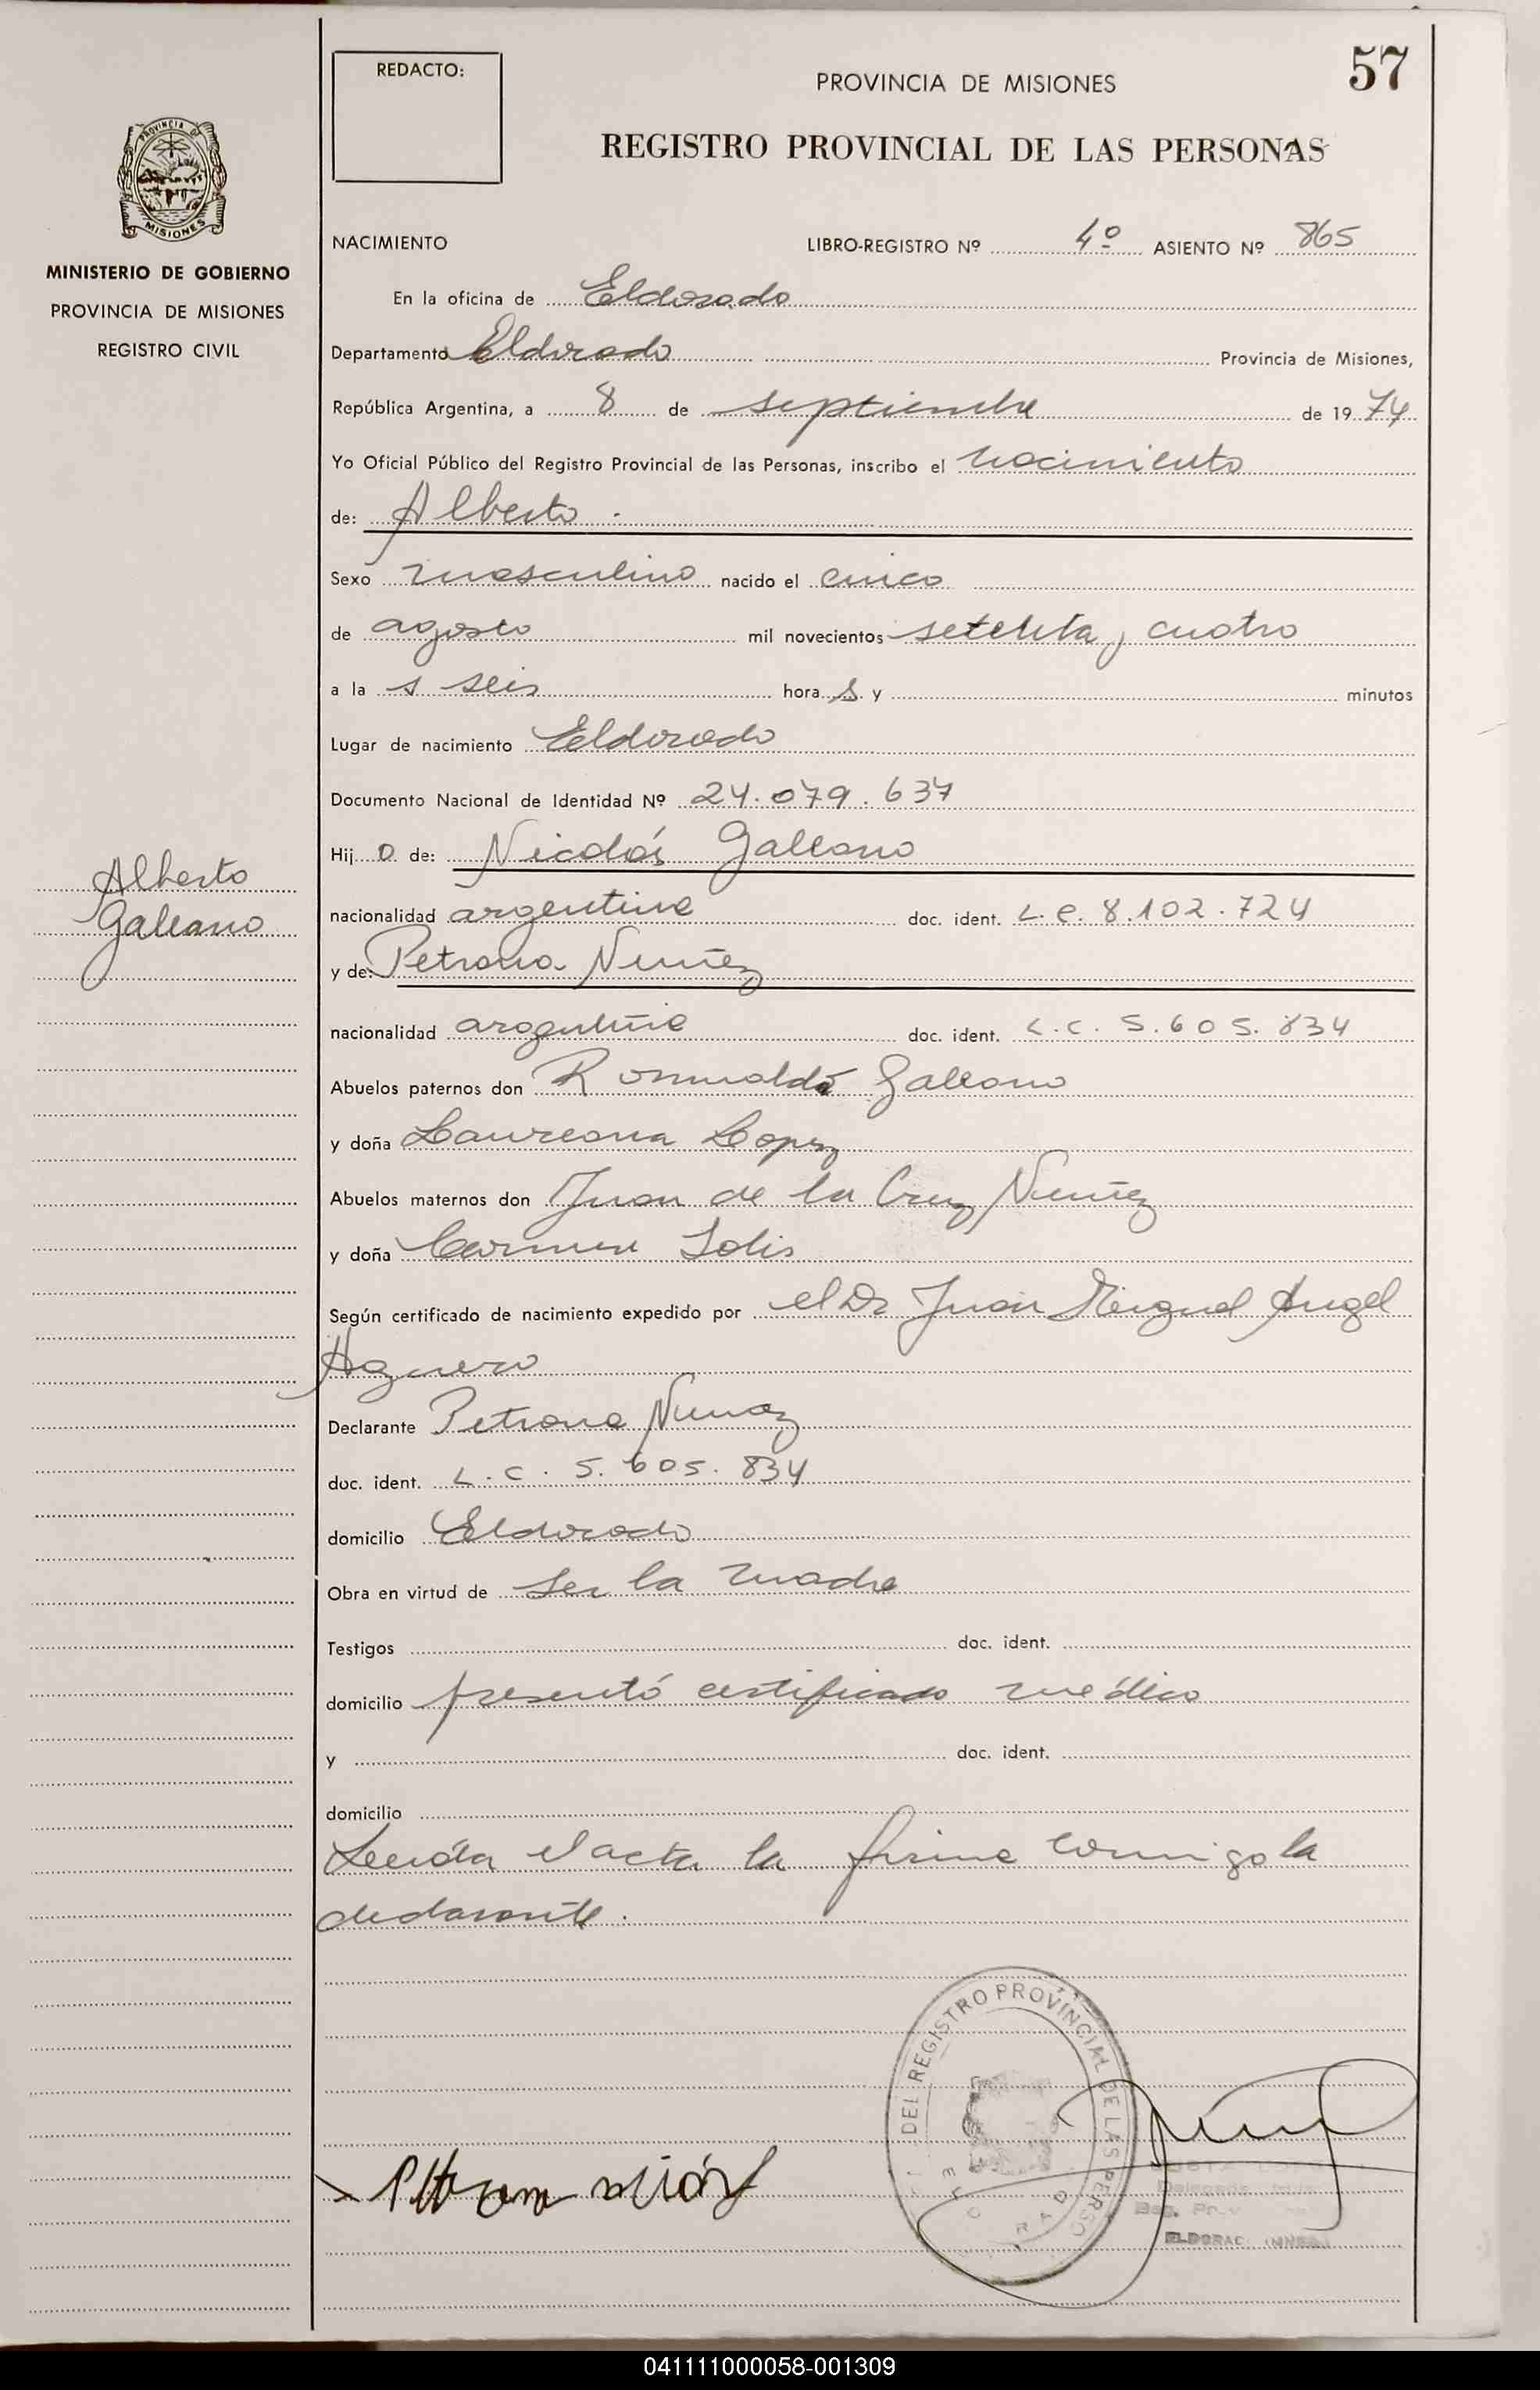 57
REDACTO:
PROVINCIA DE MISIONES
REGISTRO PROVINCIAL DE LAS PERSONAS
PROVINCIA DE
MISIONES
MINISTERIO DE GOBIERNO
PROVINCIA DE MISIONES
REGISTRO CIVIL
NACIMIENTO LIBRO-REGISTRO Nº 4º ASIENTO Nº 865
En la oficina de Eldorado
Departamento Eldorado Provincia de Misiones,
República Argentina, a 8 de septiembre de 1974
Yo Oficial Público del Registro Provincial de las Personas, inscribo el nacimiento
de: Alberto.
Sexo masculino nacido el cinco
de agosto mil novecientos setenta y cuatro
a la s seis hora s y minutos
Lugar de nacimiento Eldorado
Documento Nacional de Identidad Nº 24.079.637
Hij o de: Nicolás Galeano
Alberto
Galeano
nacionalidad argentina doc. ident. L.e. 8.102.724
y de: Petrona Nuñez
nacionalidad argentina doc. ident. L.C. 5.605.834
Abuelos paternos don Romualdo Galeano
y doña Laureana Lopez
Abuelos maternos don Juan de la Cruz Nuñez
y doña Carmen Solis
Según certificado de nacimiento expedido por el Dr Juan Miguel Angel
Aguero
Declarante Petrona Nunez
doc. ident. L.C. 5.605.834
domicilio Eldorado
Obra en virtud de ser la madre
Testigos doc. ident.
domicilio presentó certificado médico
y doc. ident.
domicilio
Leida el acta la firma conmigo la
declarante.
DEL REGISTRO PROVINCIAL DE LAS PERSO
ELDORADO
Petrona
041111000058-001309